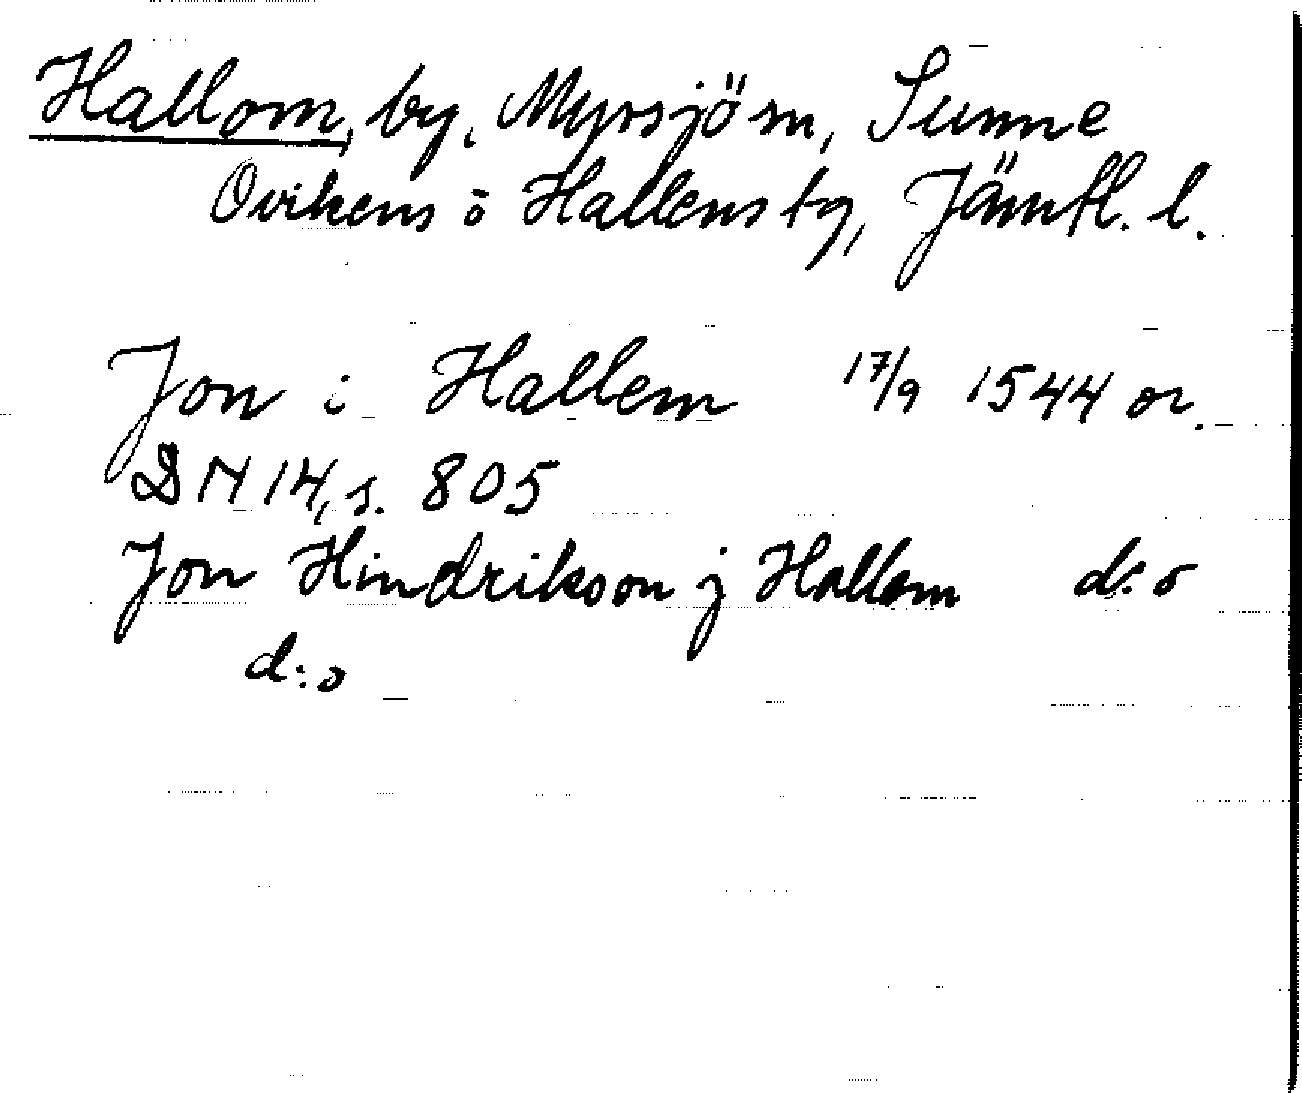 Hallom, by, Myrsjö sn, Sunne
Ovikens ö Hallens tg, Jämtl. l.
Jon i Hallem 17/9 1544 or.
DN 14, s. 805
Jon Hindrikson j Hallem d:o
d:o